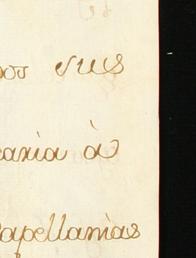 por sus
caxia à
capellanias